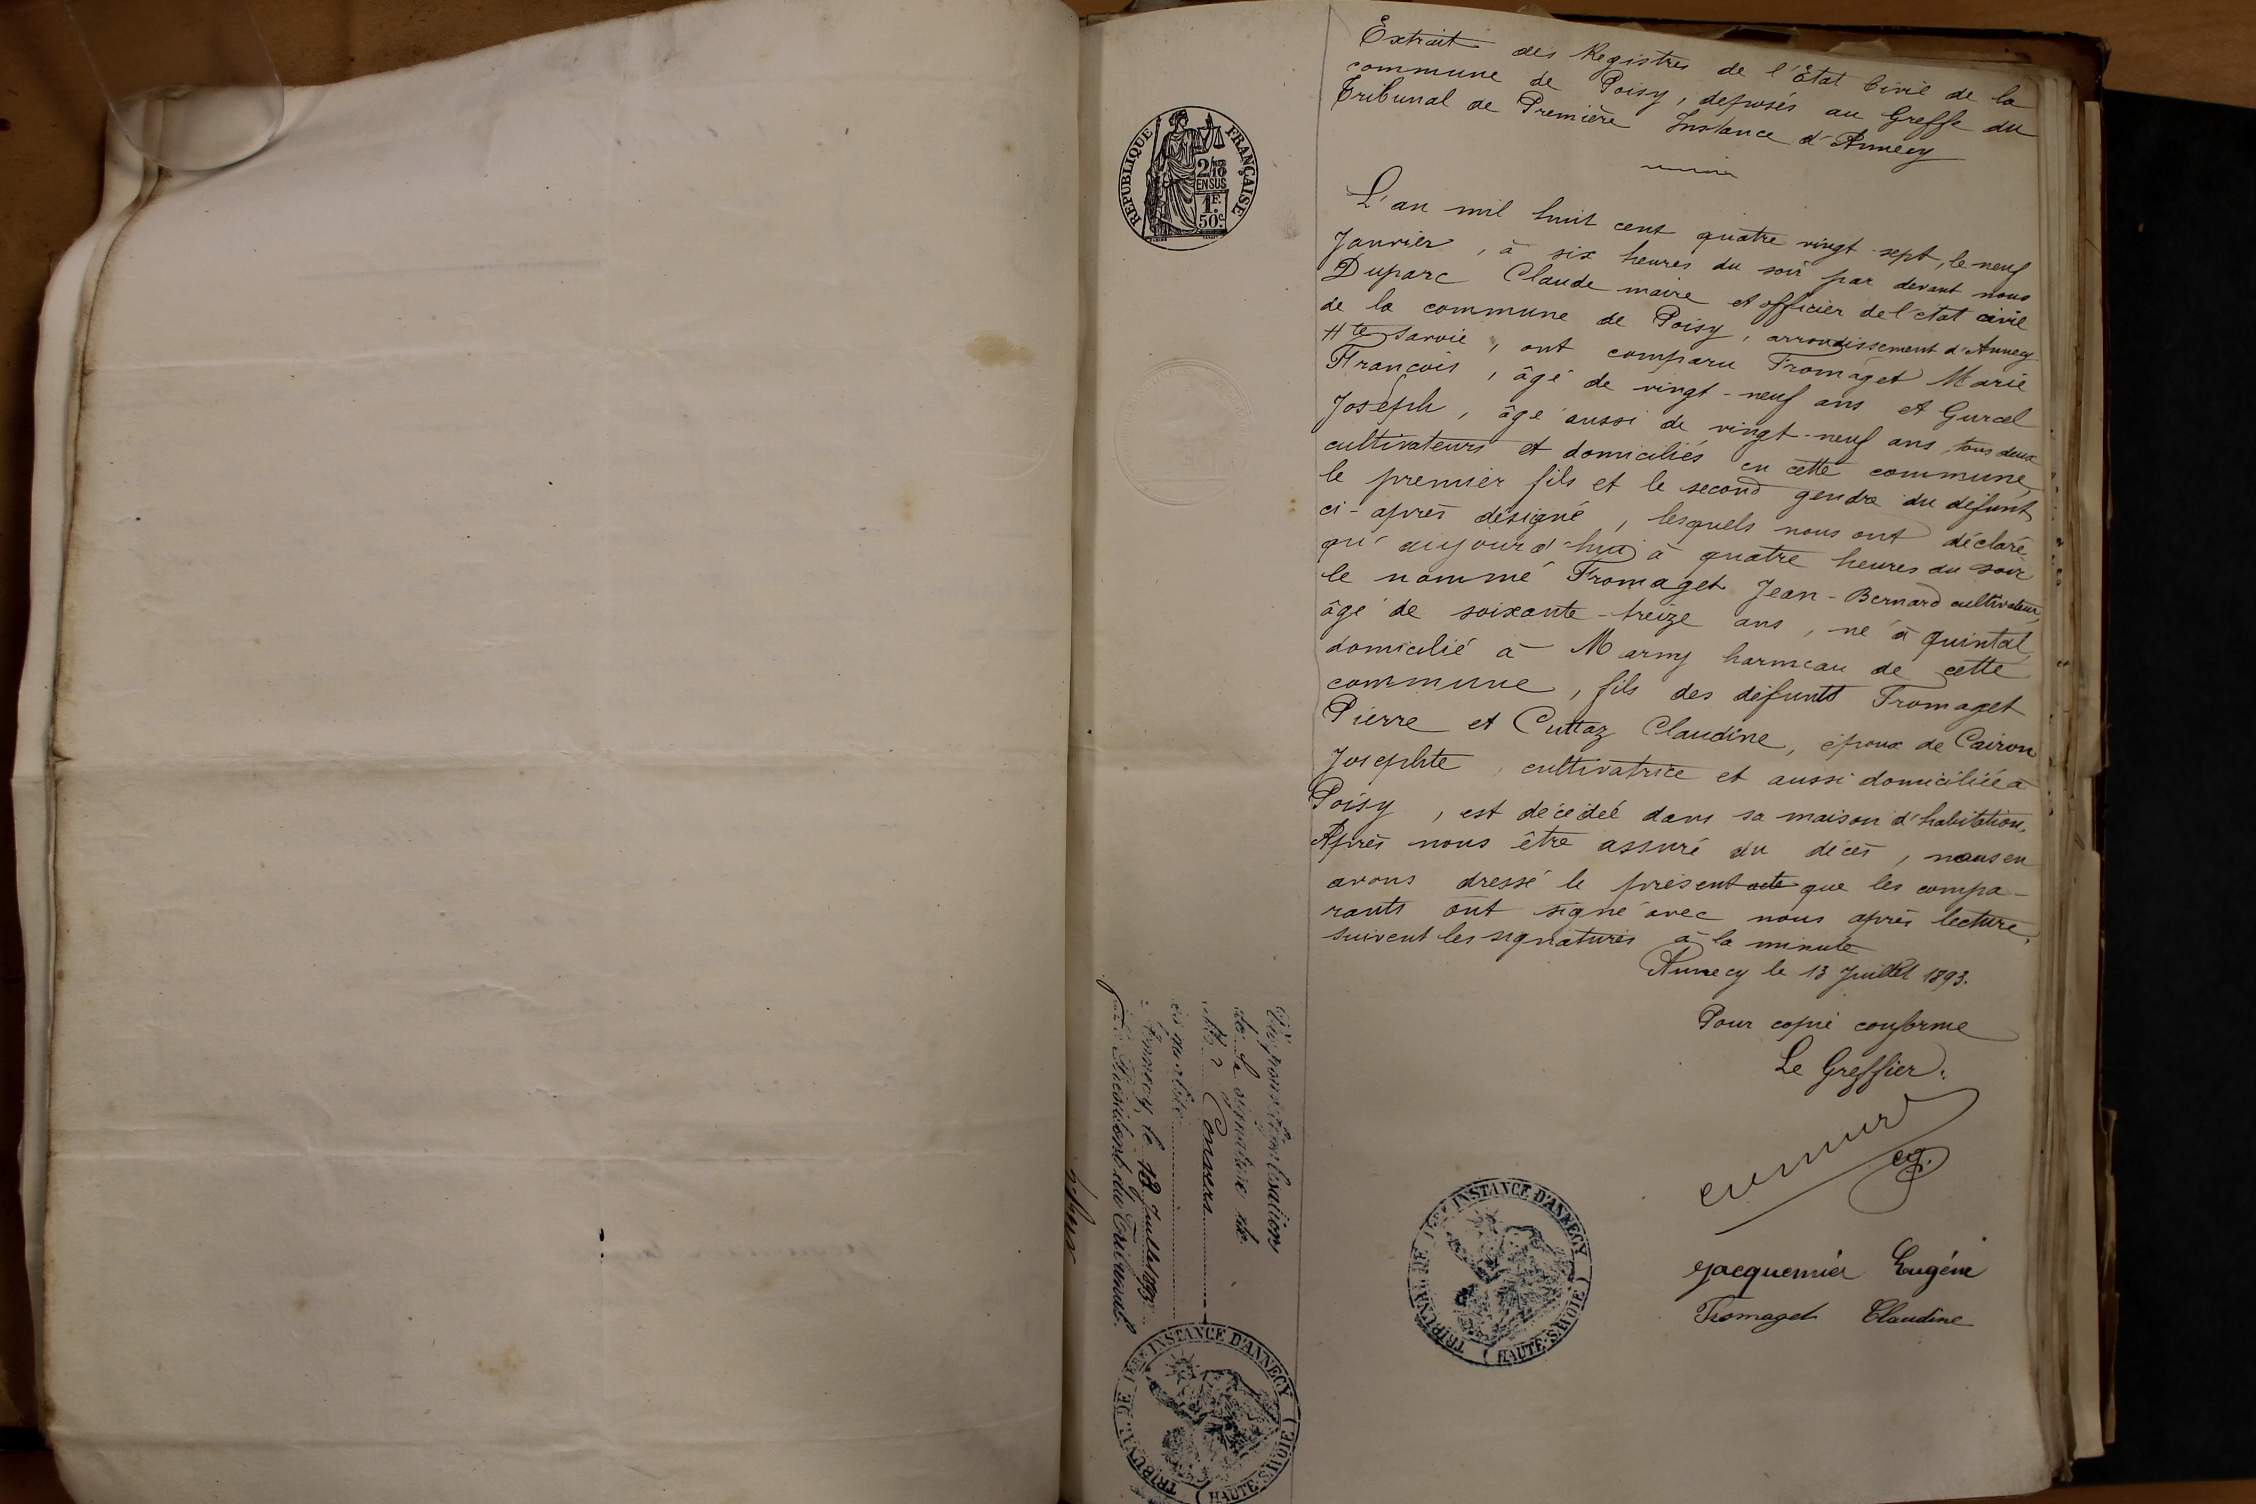 Extrait des Registres de l'Etat Civil de la
commune de Poisy, déposés au Greffe du
Tribunal de Première Instance d'Annecy
RÉPUBLIQUE FRANÇAISE
2/10
EN SUS
1F.
50c.
L'an mil huit cent quatre vingt-sept, le neuf
Janvier, à six heures du soir par devant nous
Duparc Claude maire et officier de l'état civil
de la commune de Poisy, arrondissement d'Annecy
Hte Savoie, ont comparu Fromaget Marie
François, âgé de vingt-neuf ans et Gurcel
Joseph, âgé aussi de vingt-neuf ans, tous deux
cultivateurs et domiciliés en cette commune,
le premier fils et le second gendre du défunt
ci-après désigné, lesquels nous ont déclaré
qu'aujourd'hui à quatre heures du soir
le nommé Fromaget Jean-Bernard cultivateur,
âgé de soixante-treize ans, né à Quintal,
domicilié à Marny hameau de cette
commune, fils des défunts Fromaget
Pierre et Cuttaz Claudine, époux de Cairon
Josephte, cultivatrice et aussi domiciliée à
Poisy, est décédé dans sa maison d'habitation.
Après nous être assuré du décès, nous en
avons dressé le présent acte que les compa-
rants ont signé avec nous après lecture,
suivent les signatures à la minute
Annecy le 13 Juillet 1893.
Pour copie conforme
Le Greffier.
Jacquemier Eugénie
Fromaget Claudine
TRIBUNAL DE 1ÈRE INSTANCE D'ANNECY
(HAUTE-SAVOIE)
Vu pour légalisation
de la signature de
Me Convers
ès qualité
Annecy, le 13 Juillet 1893
Président du Tribunal.
TRIBUNAL DE 1ÈRE INSTANCE D'ANNECY
(HAUTE-SAVOIE)